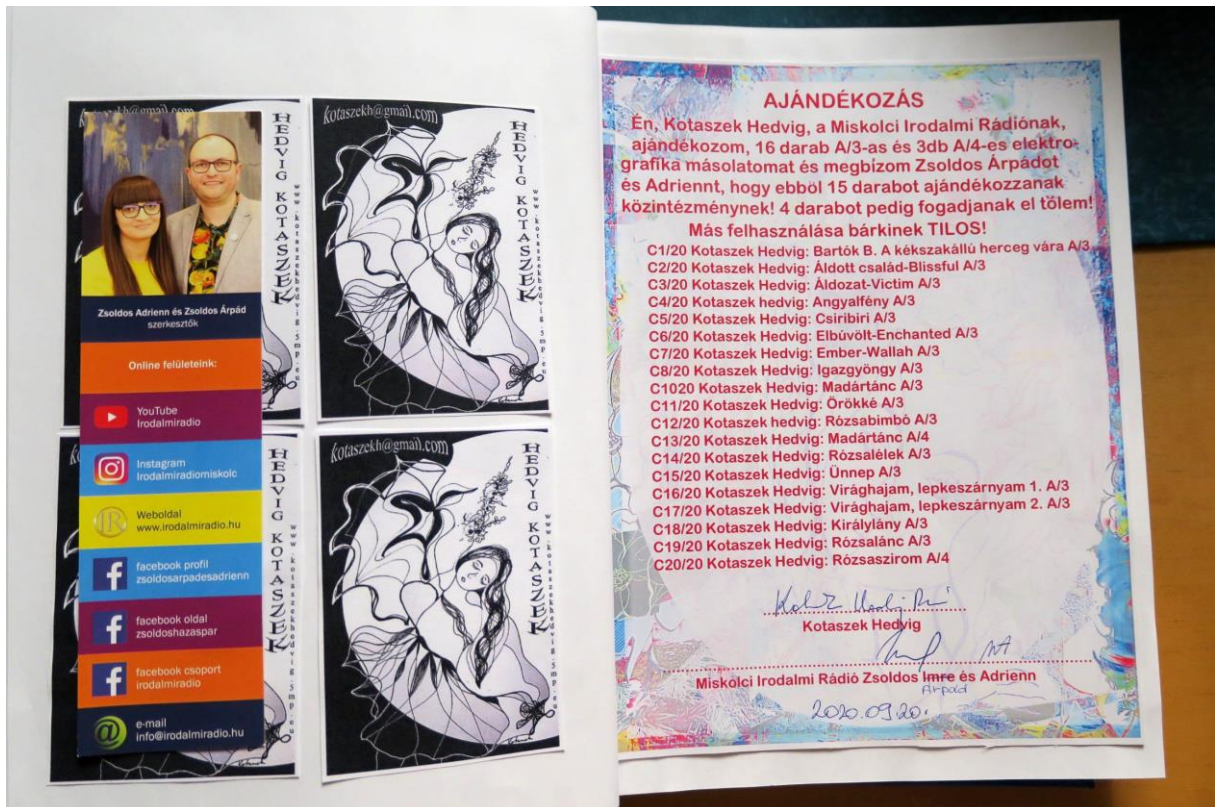 kotaszekh@gmail.com
HEDVIG KOTASZEK
www.kotaszekhedvig.5mp.eu
kotaszekh@gmail.com
HEDVIG KOTASZEK
www.kotaszekhedvig.5mp.eu
Zsoldos Adrienn és Zsoldos Árpád
szerkesztők
Online felületeink:
YouTube
Irodalmiradio
Instagram
Irodalmiradiomiskolc
Weboldal
www.irodalmiradio.hu
facebook profil
zsoldosarpadesadrienn
facebook oldal
zsoldoshazaspar
facebook csoport
irodalmiradio
e-mail
info@irodalmiradio.hu
HEDVIG KOTASZEK
www.kotaszekhedvig.5mp.eu
kotaszekh@gmail.com
HEDVIG KOTASZEK
www.kotaszekhedvig.5mp.eu
AJÁNDÉKOZÁS
Én, Kotaszek Hedvig, a Miskolci Irodalmi Rádiónak,
ajándékozom, 16 darab A/3-as és 3db A/4-es elektro-
grafika másolatomat és megbizom Zsoldos Árpádot
és Adriennt, hogy ebböl 15 darabot ajándékozzanak
közintézménynek! 4 darabot pedig fogadjanak el tölem!
Más felhasználása bárkinek TILOS!
C1/20 Kotaszek Hedvig: Bartók B. A kékszakállú herceg vára A/3
C2/20 Kotaszek Hedvig: Áldott család-Blissful A/3
C3/20 Kotaszek Hedvig: Áldozat-Victim A/3
C4/20 Kotaszek hedvig: Angyalfény A/3
C5/20 Kotaszek Hedvig: Csiribiri A/3
C6/20 Kotaszek Hedvig: Elbúvölt-Enchanted A/3
C7/20 Kotaszek Hedvig: Ember-Wallah A/3
C8/20 Kotaszek Hedvig: Igazgyöngy A/3
C1020 Kotaszek Hedvig: Madártánc A/3
C11/20 Kotaszek Hedvig: Örökké A/3
C12/20 Kotaszek hedvig: Rózsabimbó A/3
C13/20 Kotaszek Hedvig: Madártánc A/4
C14/20 Kotaszek Hedvig: Rózsalélek A/3
C15/20 Kotaszek Hedvig: Ünnep A/3
C16/20 Kotaszek Hedvig: Virághajam, lepkeszárnyam 1. A/3
C17/20 Kotaszek Hedvig: Virághajam, lepkeszárnyam 2. A/3
C18/20 Kotaszek Hedvig: Királylány A/3
C19/20 Kotaszek Hedvig: Rózsalánc A/3
C20/20 Kotaszek Hedvig: Rózsaszirom A/4
Kotaszek Hedvig
Miskolci Irodalmi Rádió Zsoldos Imre és Adrienn
Árpád
2020.09.20.